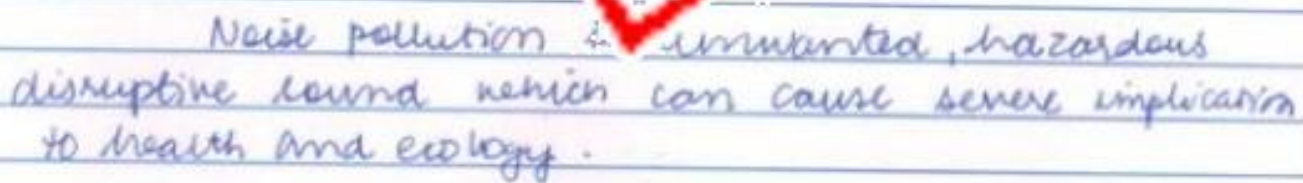 Noise pollution is unwanted, hazardous
disruptive sound which can cause severe implication
to health and ecology.